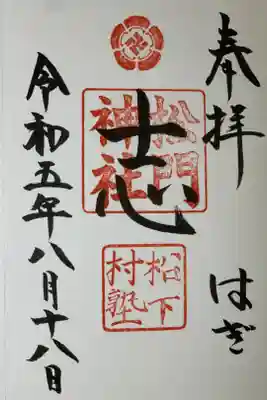 奉拝
はぎ
志
松門
神社
松下
村塾
令和五年八月十八日